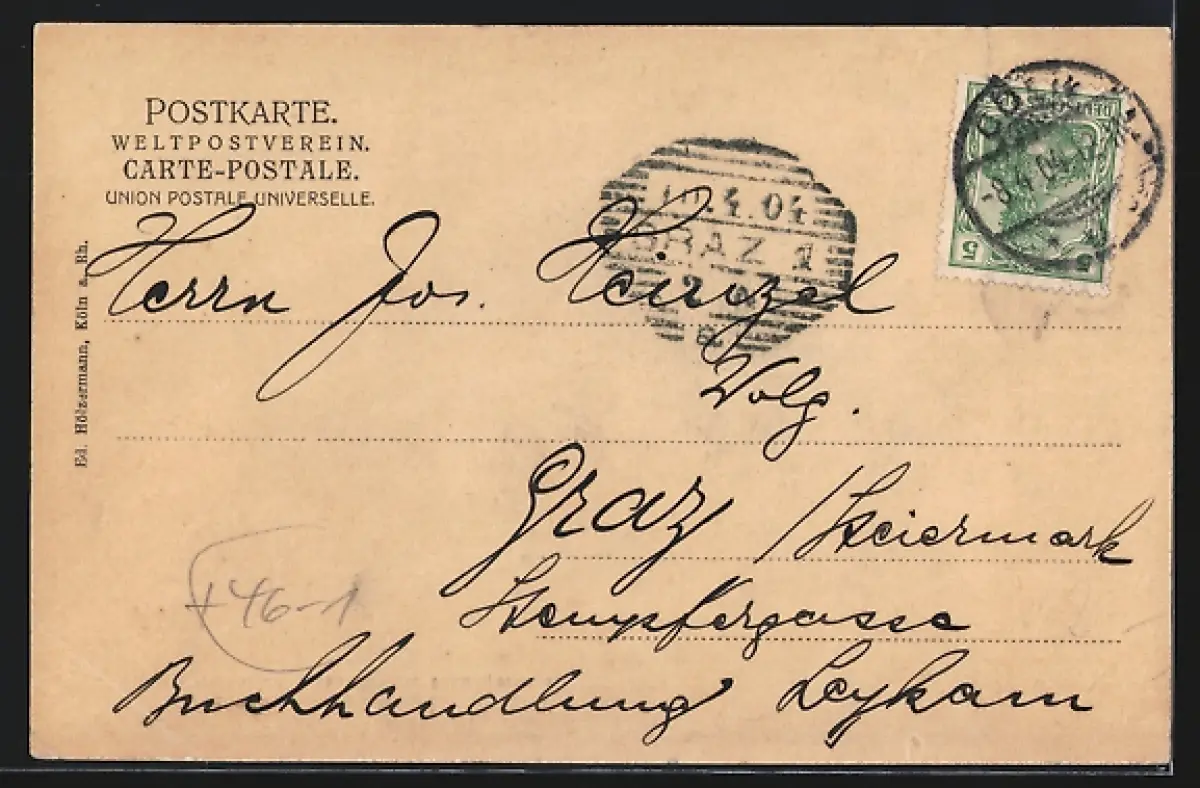 POSTKARTE.
WELTPOSTVEREIN.
CARTE-POSTALE.
UNION POSTALE UNIVERSELLE.
Ed. Hölzermann, Köln a. Rh.
10.4.04
GRAZ 1
-8.4.04
5 5
Herrn Jos. Heinzel
Wolg.
Graz / Steiermark
Stempfergasse
Buchhandlung Leykam
+46-1